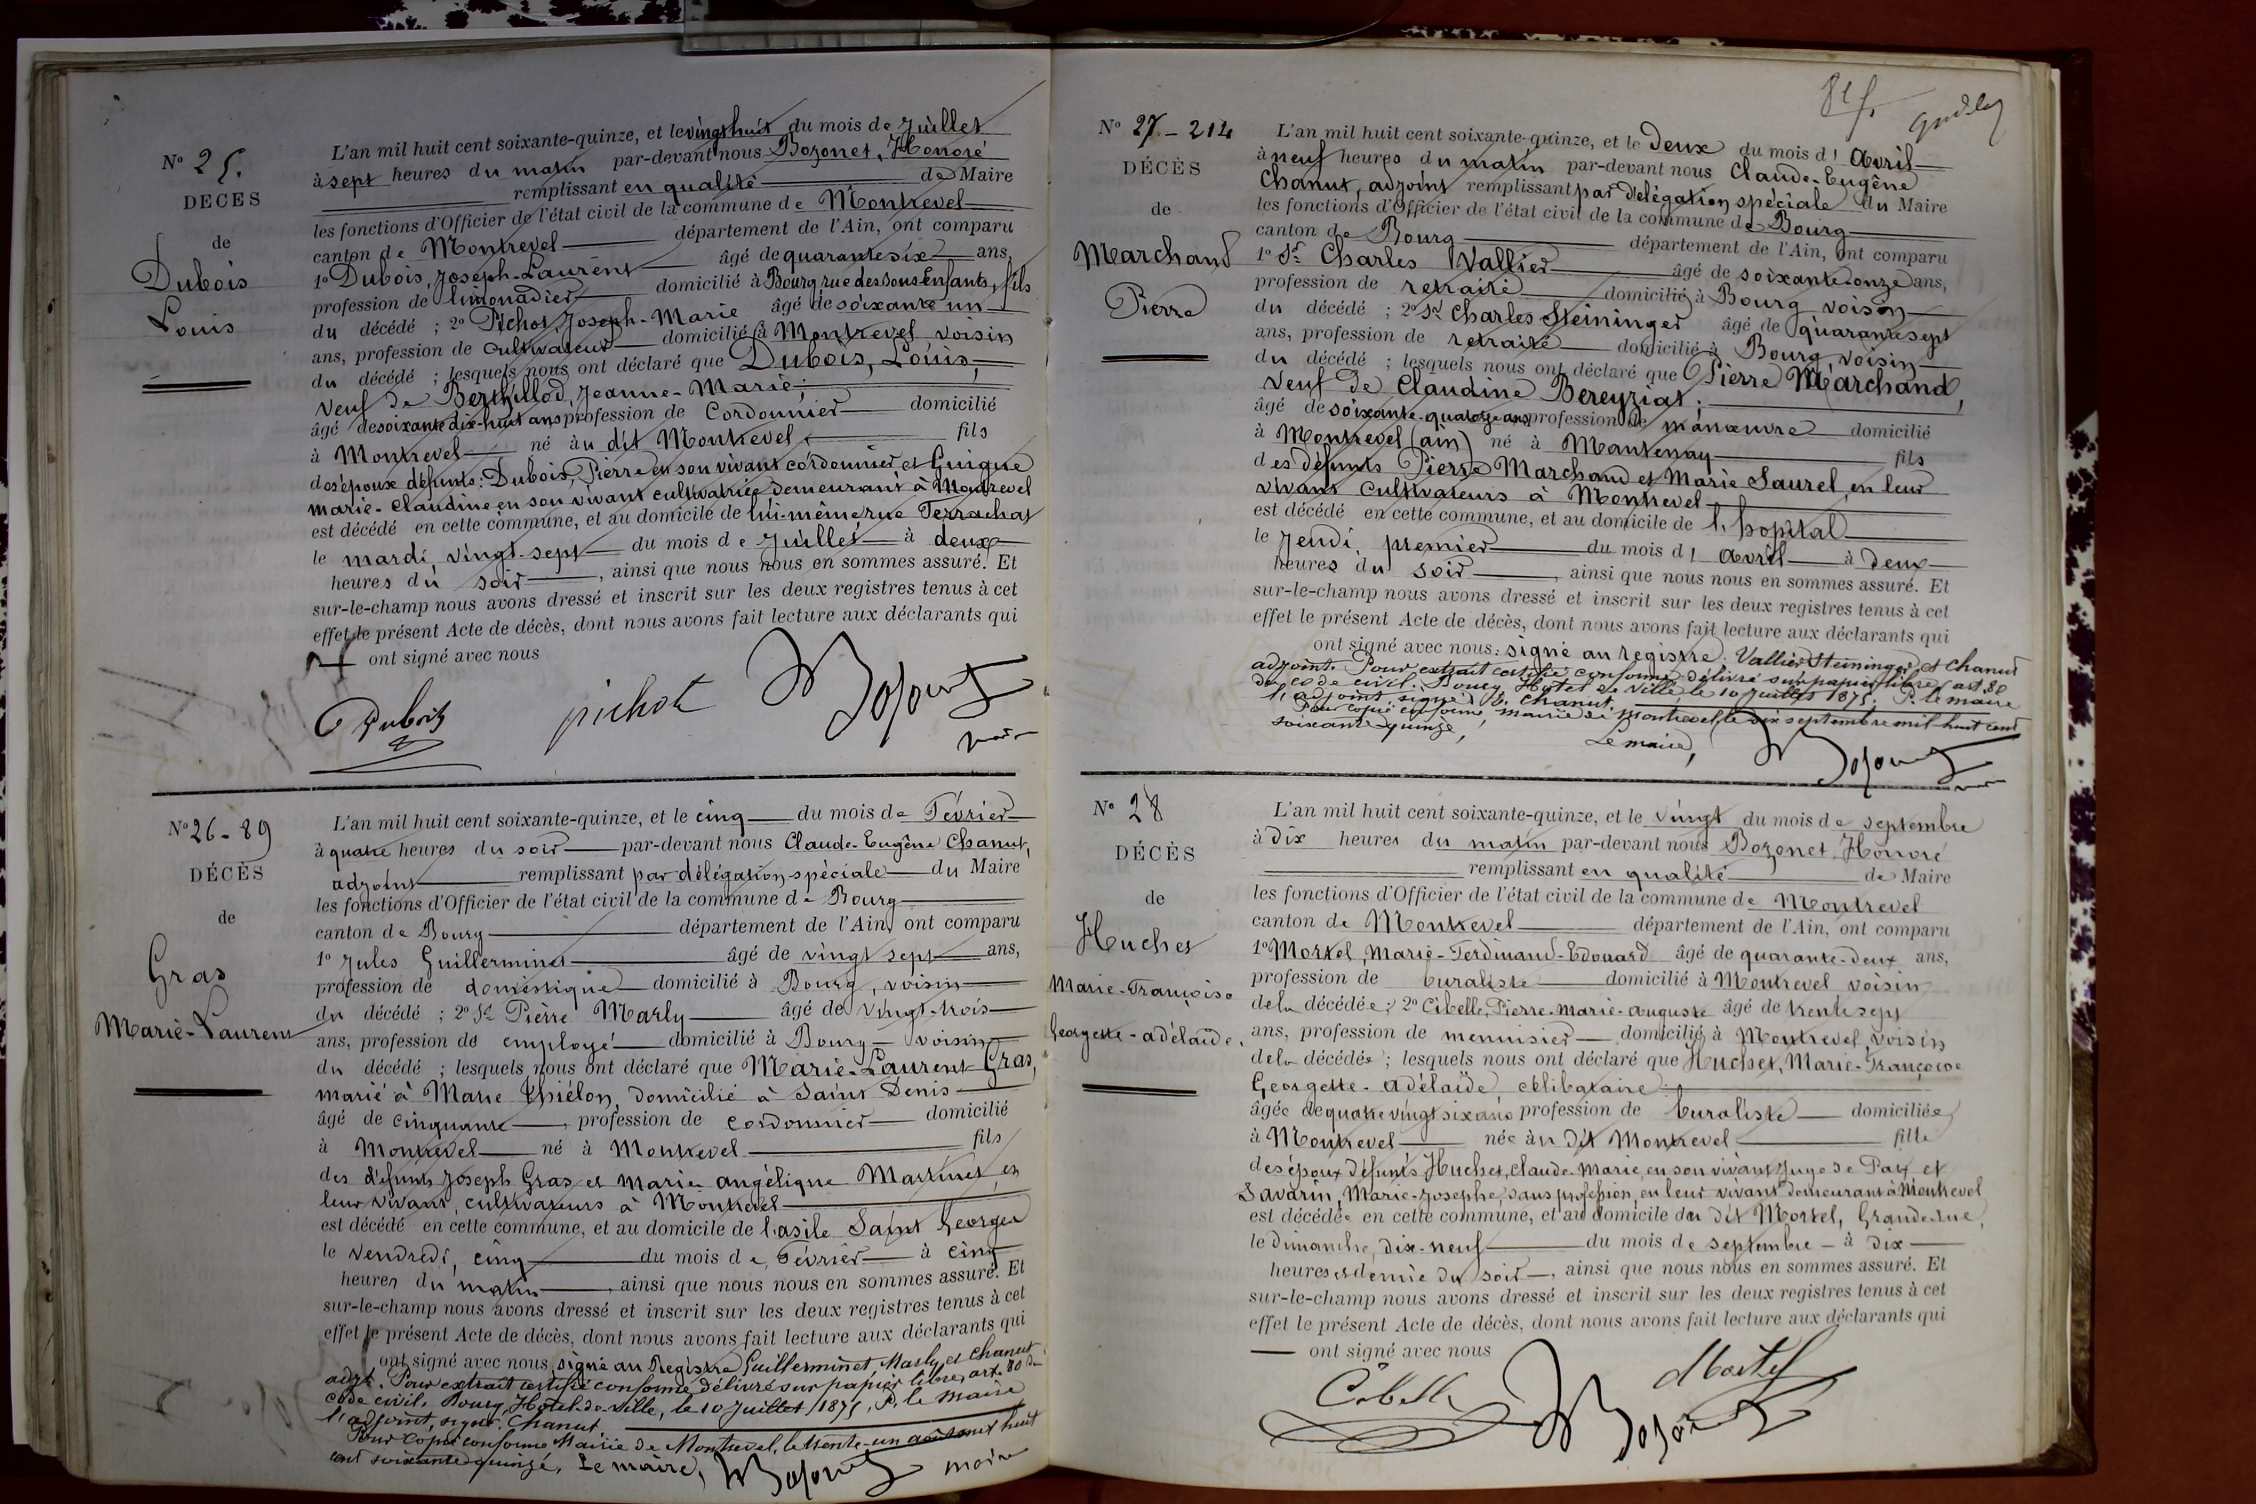 N° 25.
DÉCÈS
de
Dubois
Louis
L'an mil huit cent soixante-quinze, et le vingt huit du mois de Juillet
à sept heures du matin par-devant nous Bozonet, Honoré
remplissant en qualité de Maire
les fonctions d'Officier de l'état civil de la commune de Montrevel
canton de Montrevel département de l'Ain, ont comparu
1° Dubois, Joseph-Laurent âgé de quarante six ans,
profession de limonadier domicilié à Bourg, rue des bons Enfants, fils
du décédé ; 2° Pichot, Joseph-Marie âgé de soixante un
ans, profession de cultivateur domicilié à Montrevel voisin
du décédé ; lesquels nous ont déclaré que Dubois, Louis,
veuf de Berthillod, Jeanne-Marie;
âgé de soixante dix-huit ans profession de Cordonnier domicilié
à Montrevel né au dit Montrevel fils
des époux défunts: Dubois, Pierre en son vivant cordonnier et Guigue
marie-Claudine en son vivant cultivatrice demeurant à Montrevel
est décédé en cette commune, et au domicile de lui-même rue Terrachat
le mardi vingt-sept du mois de Juillet à deux
heures du soir, ainsi que nous nous en sommes assuré. Et
sur-le-champ nous avons dressé et inscrit sur les deux registres tenus à cet
effet le présent Acte de décès, dont nous avons fait lecture aux déclarants qui
ont signé avec nous
Dubois
pichot
Bozonet
maire
N° 26-89
DÉCÈS
de
Gras
Marie-Laurent
L'an mil huit cent soixante-quinze, et le cinq du mois de Février
à quatre heures du soir par-devant nous Claude-Eugène Chanut,
adjoint remplissant par délégation spéciale du Maire
les fonctions d'Officier de l'état civil de la commune de Bourg
canton de Bourg département de l'Ain, ont comparu
1° Jules Guillerminet âgé de vingt sept ans,
profession de domestique domicilié à Bourg, voisin
du décédé ; 2° Sr Pierre Marly âgé de vingt-trois
ans, profession de employé domicilié à Bourg voisin
du décédé ; lesquels nous ont déclaré que Marie-Laurent Gras,
marié à Marie Thiélon, domicilié à Saint Denis
âgé de cinquante profession de cordonnier domicilié
à Montrevel né à Montrevel fils
des défunts Joseph Gras et Marie angélique Martinet en
leur vivant, cultivateurs à Montrevel
est décédé en cette commune, et au domicile de l'asile Saint Georges
le vendredi, cinq du mois de Février à cinq
heures du matin, ainsi que nous nous en sommes assuré. Et
sur-le-champ nous avons dressé et inscrit sur les deux registres tenus à cet
effet le présent Acte de décès, dont nous avons fait lecture aux déclarants qui
ont signé avec nous, signé au Registre Guillerminet, Marly et Chanut
adjt. Pour extrait certifié conforme délivré sur papier libre, art. 80 du
code civil. Bourg, Hôtel-de-Ville, le 10 Juillet 1875, P. le Maire
l'adjoint, signé. Chanut.
Pour copie conforme Mairie de Montrevel, le trente-un août mil huit
cent soixante quinze. Le maire, Bozonet maire
N° 27-214
DÉCÈS
de
Marchand
Pierre
L'an mil huit cent soixante-quinze, et le Deux du mois d'Avril
à neuf heures du matin par-devant nous Claude-Eugène
Chanut, adjoint remplissant par délégation spéciale du Maire
les fonctions d'Officier de l'état civil de la commune de Bourg
canton de Bourg département de l'Ain, ont comparu
1° Sr Charles Vallier âgé de soixante donze ans,
profession de retraité domicilié à Bourg voisin
du décédé ; 2° Sr Charles Steininger âgé de quarante sept
ans, profession de retraité domicilié à Bourg, voisin
du décédé ; lesquels nous ont déclaré que Pierre Marchand,
veuf de Claudine Bereyziat;
âgé de soixante-quatorze ans profession de manœuvre domicilié
à Montrevel (ain) né à Mantenay fils
des défunts Pierre Marchand et Marie Saurel, en leur
vivant cultivateurs à Montrevel
est décédé en cette commune, et au domicile de l'hopital
le Jeudi, premier du mois d'Avril à Deux
heures du soir, ainsi que nous nous en sommes assuré. Et
sur-le-champ nous avons dressé et inscrit sur les deux registres tenus à cet
effet le présent Acte de décès, dont nous avons fait lecture aux déclarants qui
ont signé avec nous: signé au registre. Vallier Steininger et Chanut
adjoint. Pour extrait certifié conforme délivré sur papier libre (art 80
du code civil. Bourg, Hôtel de Ville le 10 Juillet 1875. P. le maire
l'adjoint signé: E. Chanut.
Pour copie conforme, mairie de Montrevel, le dix septembre mil huit cent
soixante-quinze,
Le maire, Bozonet
N° 28
DÉCÈS
de
Huchet
Marie-Françoise
Georgette-adélaïde.
L'an mil huit cent soixante-quinze, et le vingt du mois de septembre
à dix heures du matin par-devant nous Bozonet Honoré
remplissant en qualité de Maire
les fonctions d'Officier de l'état civil de la commune de Montrevel
canton de Montrevel département de l'Ain, ont comparu
1° Mortel Marie-Ferdinand-Edouard âgé de quarante-deux ans,
profession de buraliste domicilié à Montrevel voisin
de la décédée ; 2° Cibelle, Pierre-Marie-auguste âgé de trente sept
ans, profession de menuisier domicilié à Montrevel, voisin
de la décédée ; lesquels nous ont déclaré que Huchet, Marie-Françoise
Georgette-adélaïde célibataire
âgée de quatre vingt six ans profession de buraliste domiciliée
à Montrevel née au dit Montrevel fille
des époux défunts Huchet, Claude-Marie, en son vivant Juge de Paix et
Savarin, Marie-Josephe, sans profession, en leur vivant demeurant à Montrevel
est décédée en cette commune, et au domicile du dit Mortel, Grande-rue,
le dimanche, dix-neuf du mois de septembre à dix
heures et demie du soir, ainsi que nous nous en sommes assuré. Et
sur-le-champ nous avons dressé et inscrit sur les deux registres tenus à cet
effet le présent Acte de décès, dont nous avons fait lecture aux déclarants qui
ont signé avec nous
Cibelle
Mortel
Bozonet